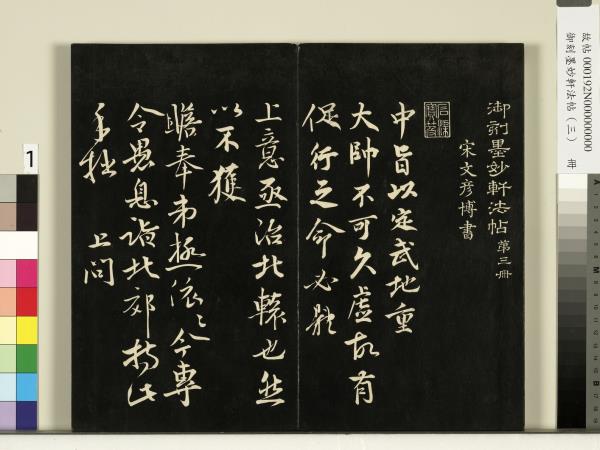 御刻墨妙軒法帖 第三冊
宋文彦博書
中旨以定武地重
大帥不可久虛故有
促行之命必體
上意亟治北轅也然
以不獲
瞻奉弟極依依今專
令愚息詣北郊持此
手狀 上問
故帖 000192N000000000
御刻墨妙軒法帖(三) 冊
1